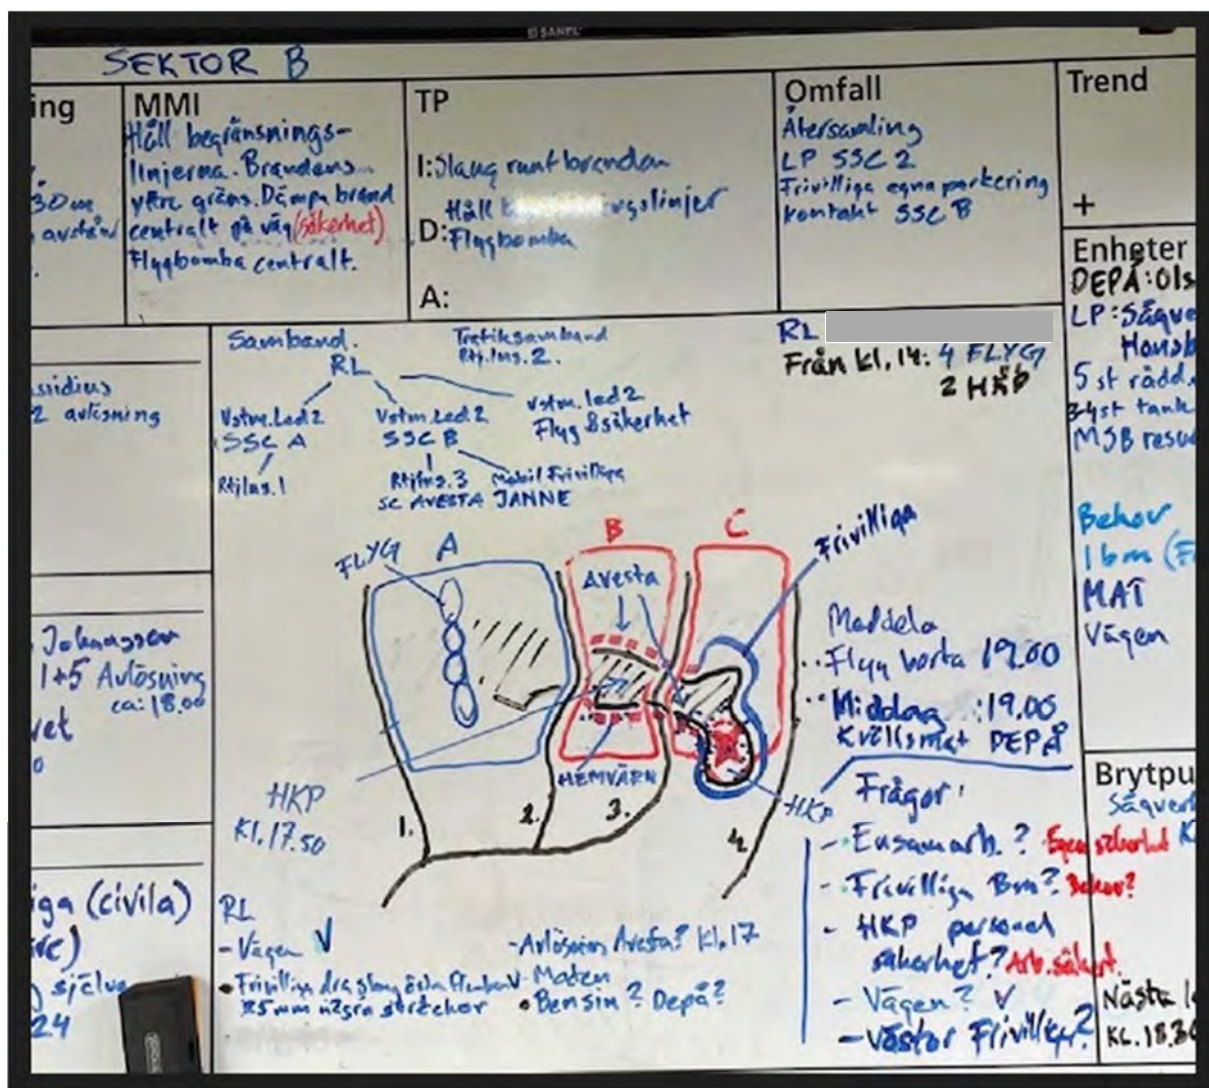 SEKTOR B
ing
30m
avstånd
MMI
Håll begränsnings-
linjerna. Brandens
yttre gräns. Dämpa brand
centralt på väg (säkerhet)
Flygbomba centralt.
TP
I: Slang runt branden
Håll
D: Flygbomba
A:
Omfall
Återsamling
LP SSC 2
Frivilliga egna parkering
kontakt SSC B
Trend
+
Enheter
DEPÅ: Ols
LP: Sågve
5 st rädd.
3-4st tank
MSB resu
Behov
1 bm (F
MAT
Vägen
Brytpu
Sågver
Nästa
KL. 18.30
ssidius
2 avlösning
Johansson
1+5 Avlösning
ca: 18.00
vet
0
iga (civila)
själva
24
Samband.
RL
Trafiksamband
Rtj.Ins. 2.
Vstm. Led 2
SSC A
Rtj Ins. 1
Vstm. Led. 2
SSC B
Rtj Ins. 3
SC AVESTA
Mobil Frivilliga
JANNE
Vstm. led 2
Flyg & säkerhet
RL
Från kl. 14: 4 FLYG
2 HKP
FLYG
A
B
C
Avesta
Frivilliga
HEMVÄRN
HKP
Kl. 17.50
HKP
1.
2.
3.
4.
Meddela
Flyg borta 19.00
Middag : 19.00
Kvällsmat DEPÅ
Frågor:
- Ensamarb. ? Egen säkerhet
- Frivilliga Bm? Behov?
- HKP personal
säkerhet? Arb. säk
- Vägen? V
- Västar Frivilliga?
RL
- Vägen V
• Frivilliga drag slang
25mm några sträckor
- Avlösning Avesta? Kl. 17
- Maten
• Bensin? Depå?